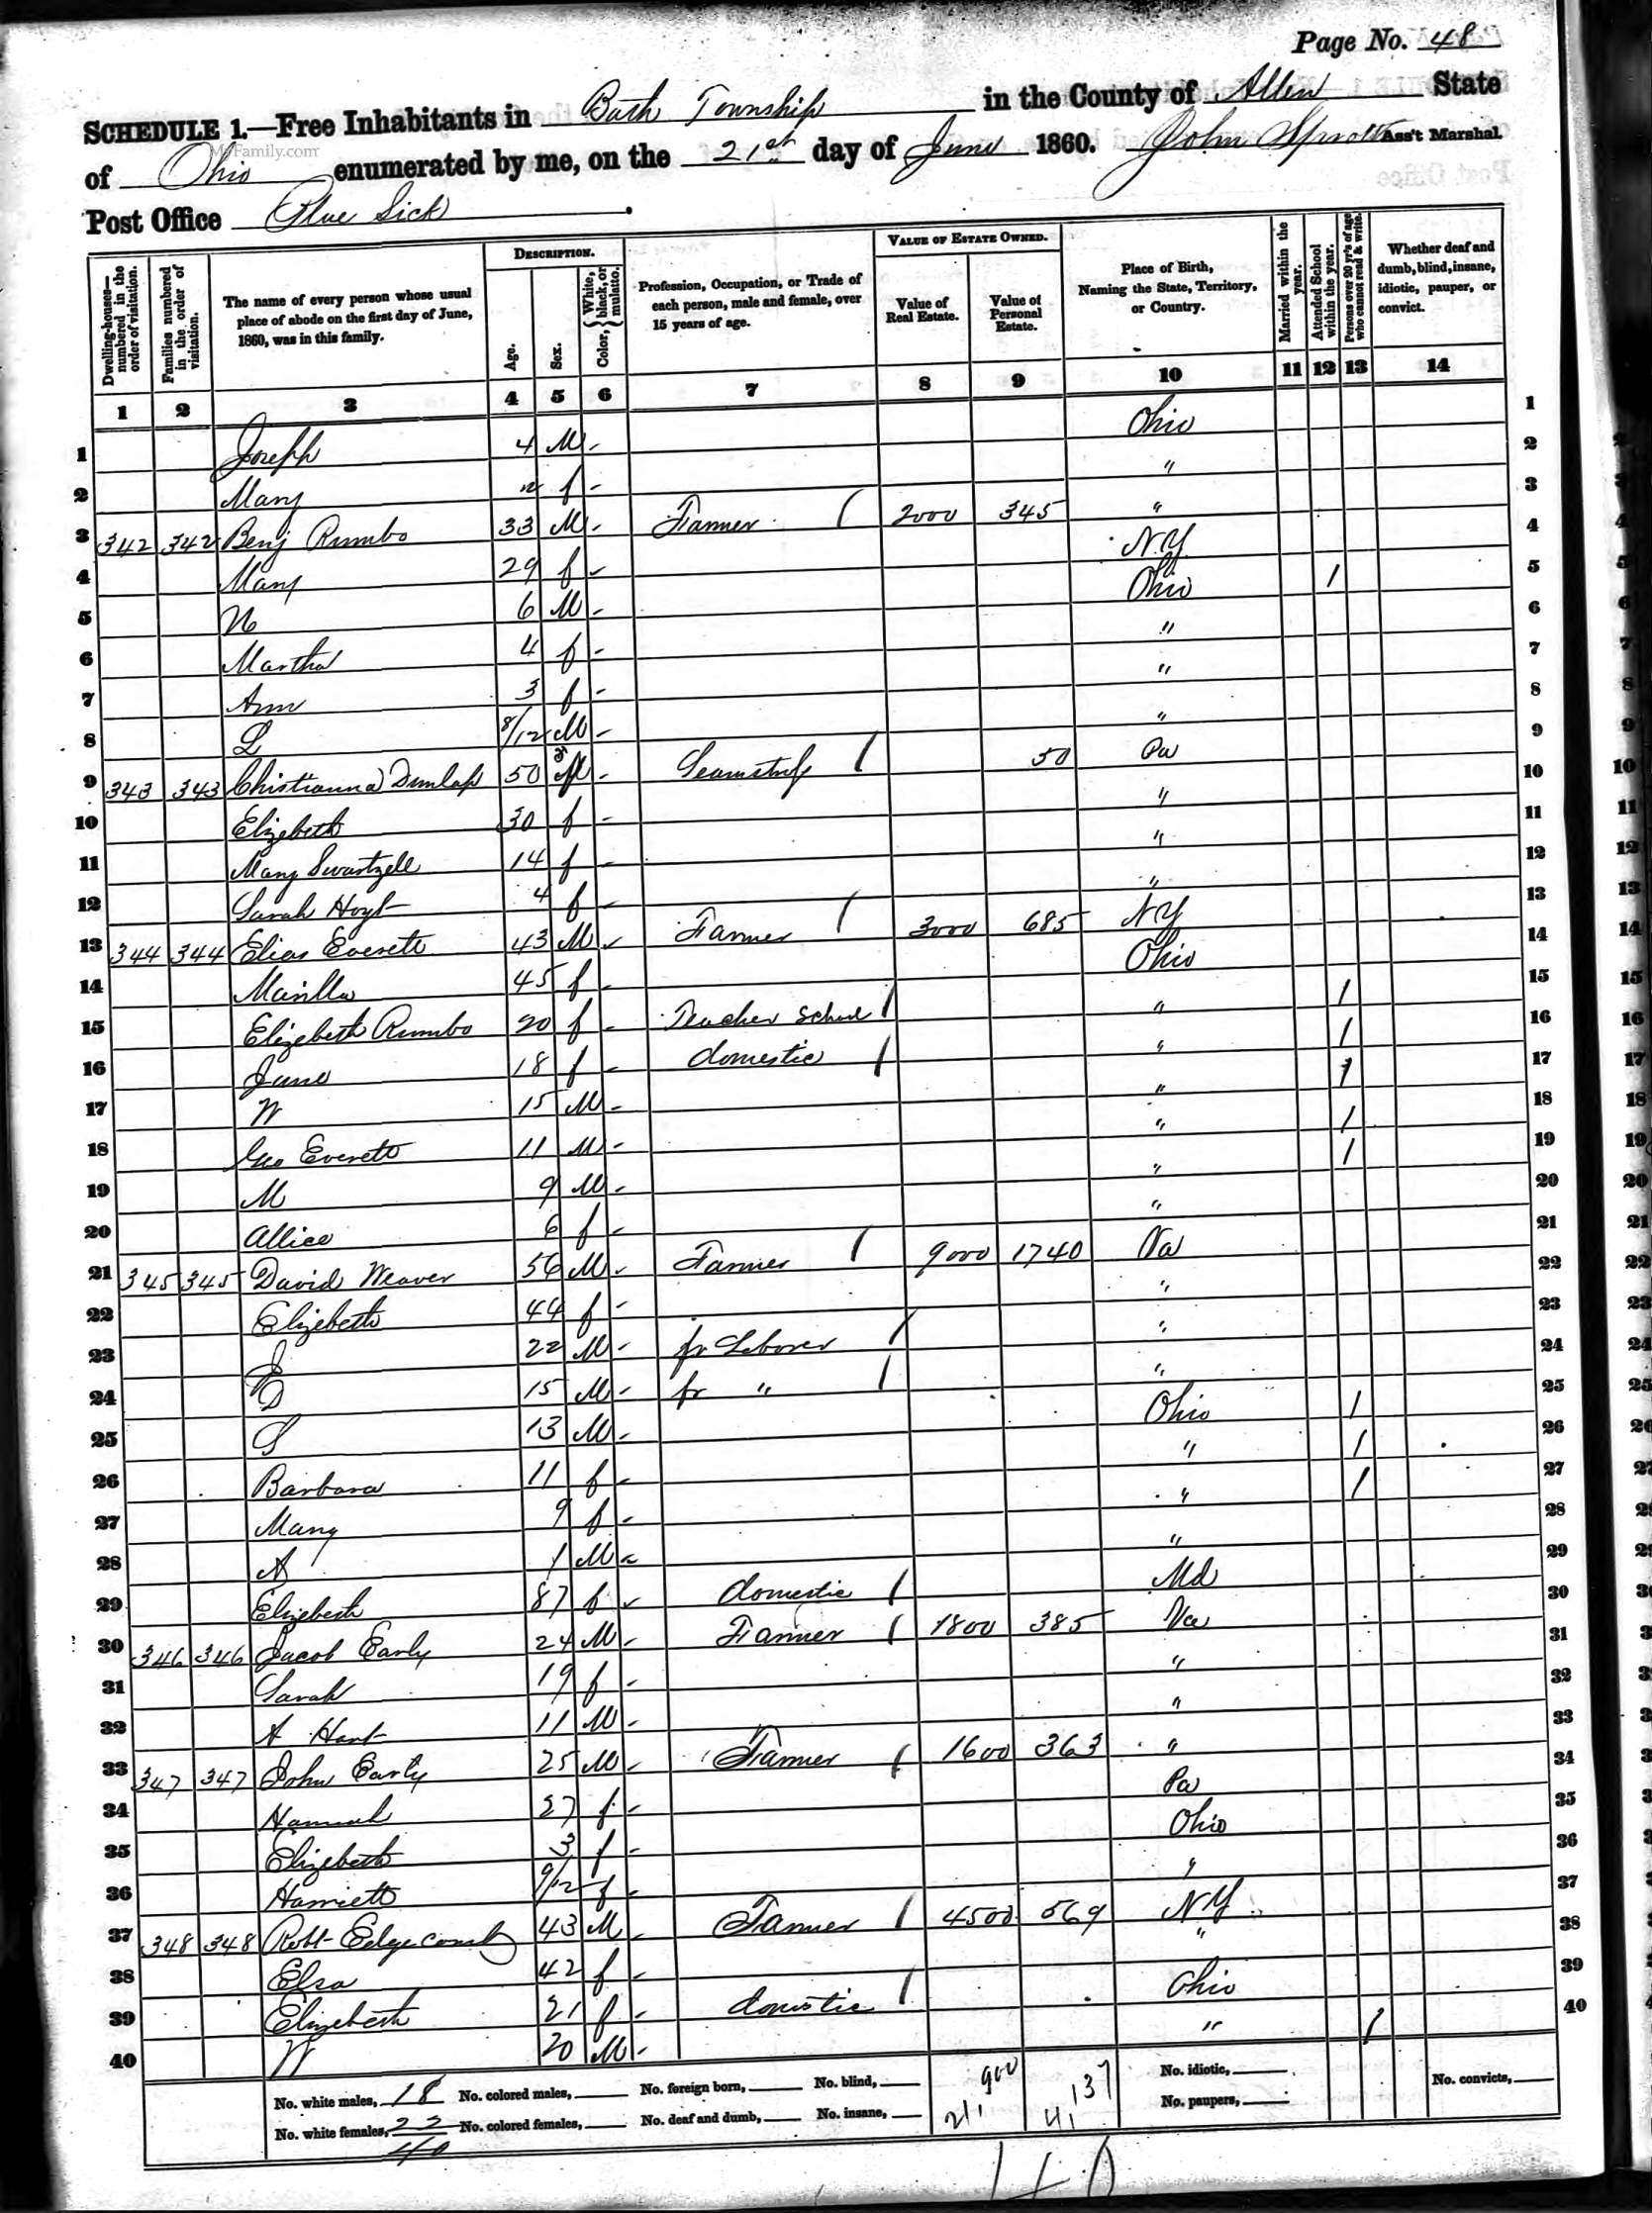 Page No. 48
SCHEDULE 1.—Free Inhabitants in Bath Township in the County of Allen State
of Ohio enumerated by me, on the 21st day of June 1860. John Ass't Marshal.
MyFamily.com
Post Office Blue Lick
Dwelling-houses—numbered in the order of visitation.
Families numbered in the order of visitation.
The name of every person whose usual place of abode on the first day of June, 1860, was in this family.
DESCRIPTION.
Age.
Sex.
Color, { White, black, or mulatto.
Profession, Occupation, or Trade of each person, male and female, over 15 years of age.
VALUE OF ESTATE OWNED.
Value of Real Estate.
Value of Personal Estate.
Place of Birth, Naming the State, Territory, or Country.
Married within the year.
Attended School within the year.
Persons over 20 yr's of age who cannot read & write.
Whether deaf and dumb, blind, insane, idiotic, pauper, or convict.
1 2 3 4 5 6 7 8 9 10 11 12 13 14
1 Joseph 4 M - Ohio 1
2 Mary f - " 2
3 342 342 Benj Rumbo 33 M - Farmer / 2000 345 " 3
4 Mary 29 f - N.Y. 4
5 N 6 M - Ohio / 5
6 Martha 4 f - " 6
7 Ann 3 f - " 7
8 L 8/12 M - " 8
9 343 343 Christianna Dunlap 50 f - Seamstress / 50 Pa 9
10 Elizabeth 30 f - " 10
11 Mary Swartzell 14 f - " 11
12 Sarah Hoyt 4 f - " 12
13 344 344 Elias Everett 43 M - Farmer / 3000 685 N.Y. 13
14 Marilla 45 f - Ohio 14
15 Elizebeth Rumbo 20 f - Teacher School / " / 15
16 Jane 18 f - domestic / " / 16
17 W 15 M - " / 17
18 Geo Everett 11 M - " / 18
19 M 9 M - " / 19
20 Allice 6 f - " 20
21 345 345 David Weaver 56 M - Farmer / 9000 1740 Va 21
22 Elizebeth 44 f - " 22
23 22 M - fr Laborer / " 23
24 D 15 M - fr " / " 24
25 S 13 M - Ohio / 25
26 Barbara 11 f - " / 26
27 Mary 9 f - " / 27
28 A 1 M - " 28
29 Elizebeth 87 f - domestic / Md 29
30 346 346 Jacob Early 24 M - Farmer / 1800 385 Va 30
31 Sarah 19 f - " 31
32 A Hant 11 M - " 32
33 347 347 John Early 25 M - Farmer / 1600 363 " 33
34 Hannah 27 f - Pa 34
35 Elizebeth 3 f - Ohio 35
36 Harriett 9/12 f - " 36
37 348 348 Robt Edgecomb 43 M - Farmer / 4500 569 N.Y. 37
38 Elsa 42 f - " 38
39 Elizebeth 21 f - domestic / Ohio 39
40 W 20 M - " / 40
No. white males, 18 No. colored males, No. foreign born, No. blind, 900 137 No. idiotic, No. convicts,
No. white females, 22 No. colored females, No. deaf and dumb, No. insane, 21, 4, No. paupers,
40